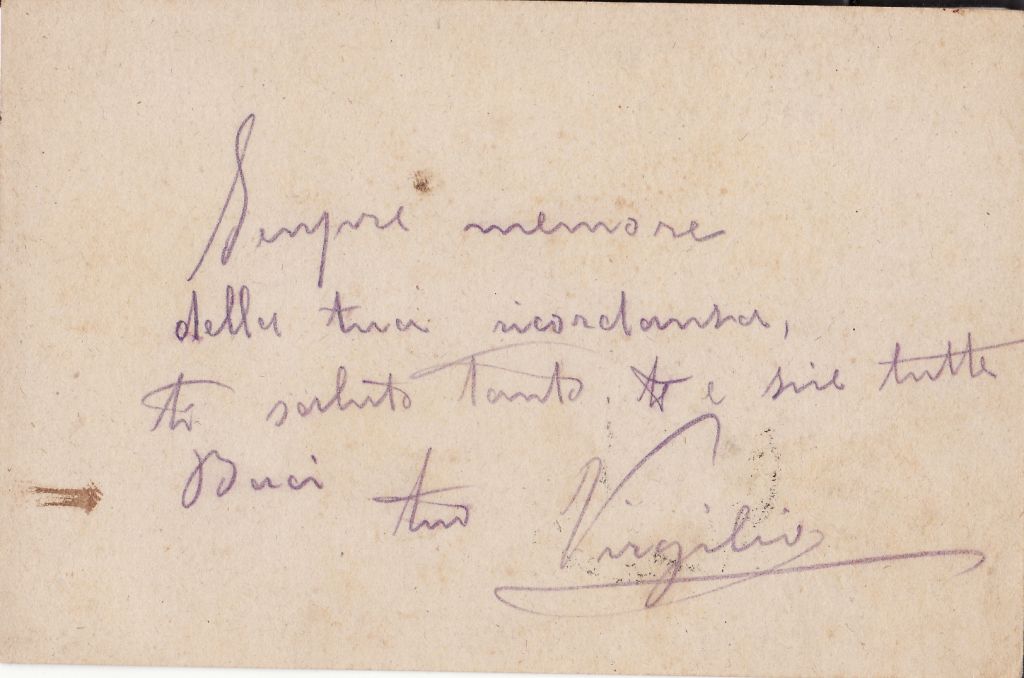 Sempre memore
della tua ricordanza,
ti saluto tanto. e tutte
Baci tuo Virgilio